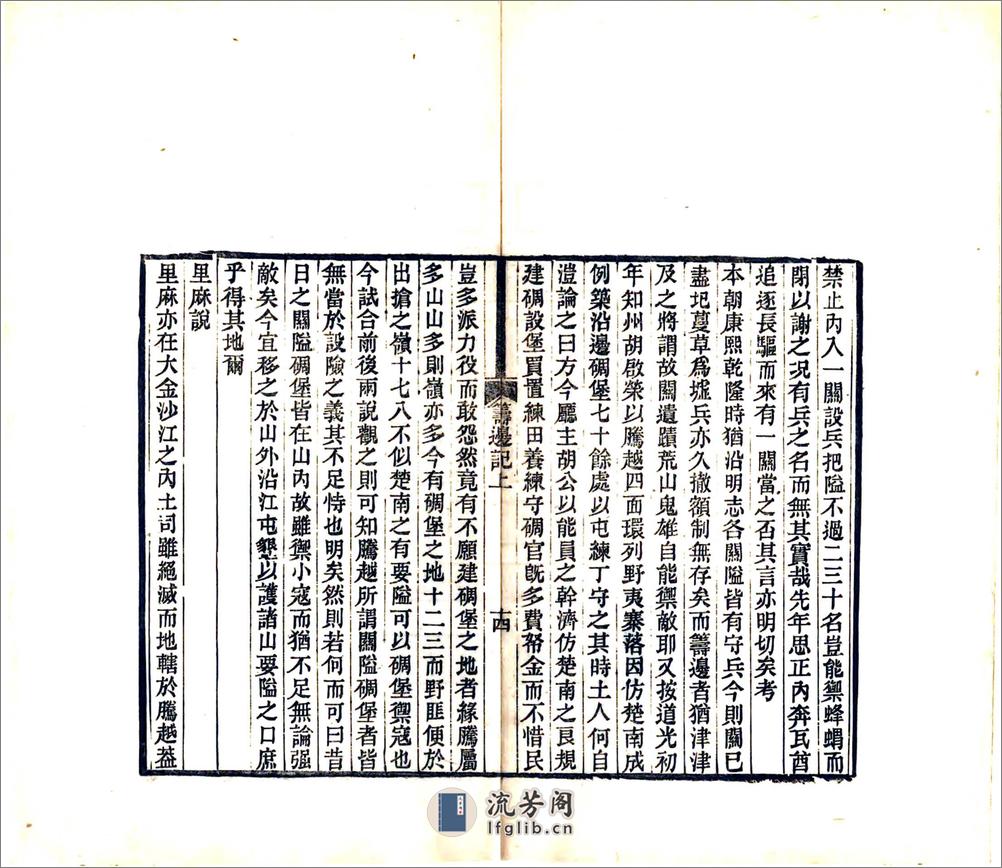 禁止內入一關設兵把隘不過二三十名豈能禦蜂蝟而
閉以謝之况有兵之名而無其實哉先年思正內奔瓦酋
追逐長驅而來有一關當之否其言亦明切矣考
本朝康熙乾隆時猶沿明志各關隘皆有守兵今則關已
盡圯蔓草爲墟兵亦久撤額制無存矣而籌邊者猶津津
及之將謂故關遺蹟荒山鬼雄自能禦敵耶又按道光初
年知州胡啟榮以騰越四面環列野夷寨落因仿楚南成
例築沿邊碉堡七十餘處以屯練丁守之其時土人何自
澧論之曰方今廳主胡公以能員之幹濟仿楚南之良規
建碉設堡買置練田養練守碉官旣多費帑金而不惜民
籌邊記上
十四
豈多派力役而敢怨然竟有不願建碉堡之地者緣騰屬
多山山多則嶺亦多今有碉堡之地十二三而野匪便於
出搶之嶺十七八不似楚南之有要隘可以碉堡禦寇也
今試合前後兩說觀之則可知騰越所謂關隘碉堡者皆
無當於設險之義其不足恃也明矣然則若何而可曰昔
日之關隘碉堡皆在山內故雖禦小寇而猶不足無論强
敵矣今宜移之於山外沿江屯墾以護諸山要隘之口庶
乎得其地爾
里麻說
里麻亦在大金沙江之內土司雖絕滅而地轄於騰越盖
流芳阁
lfglib.cn